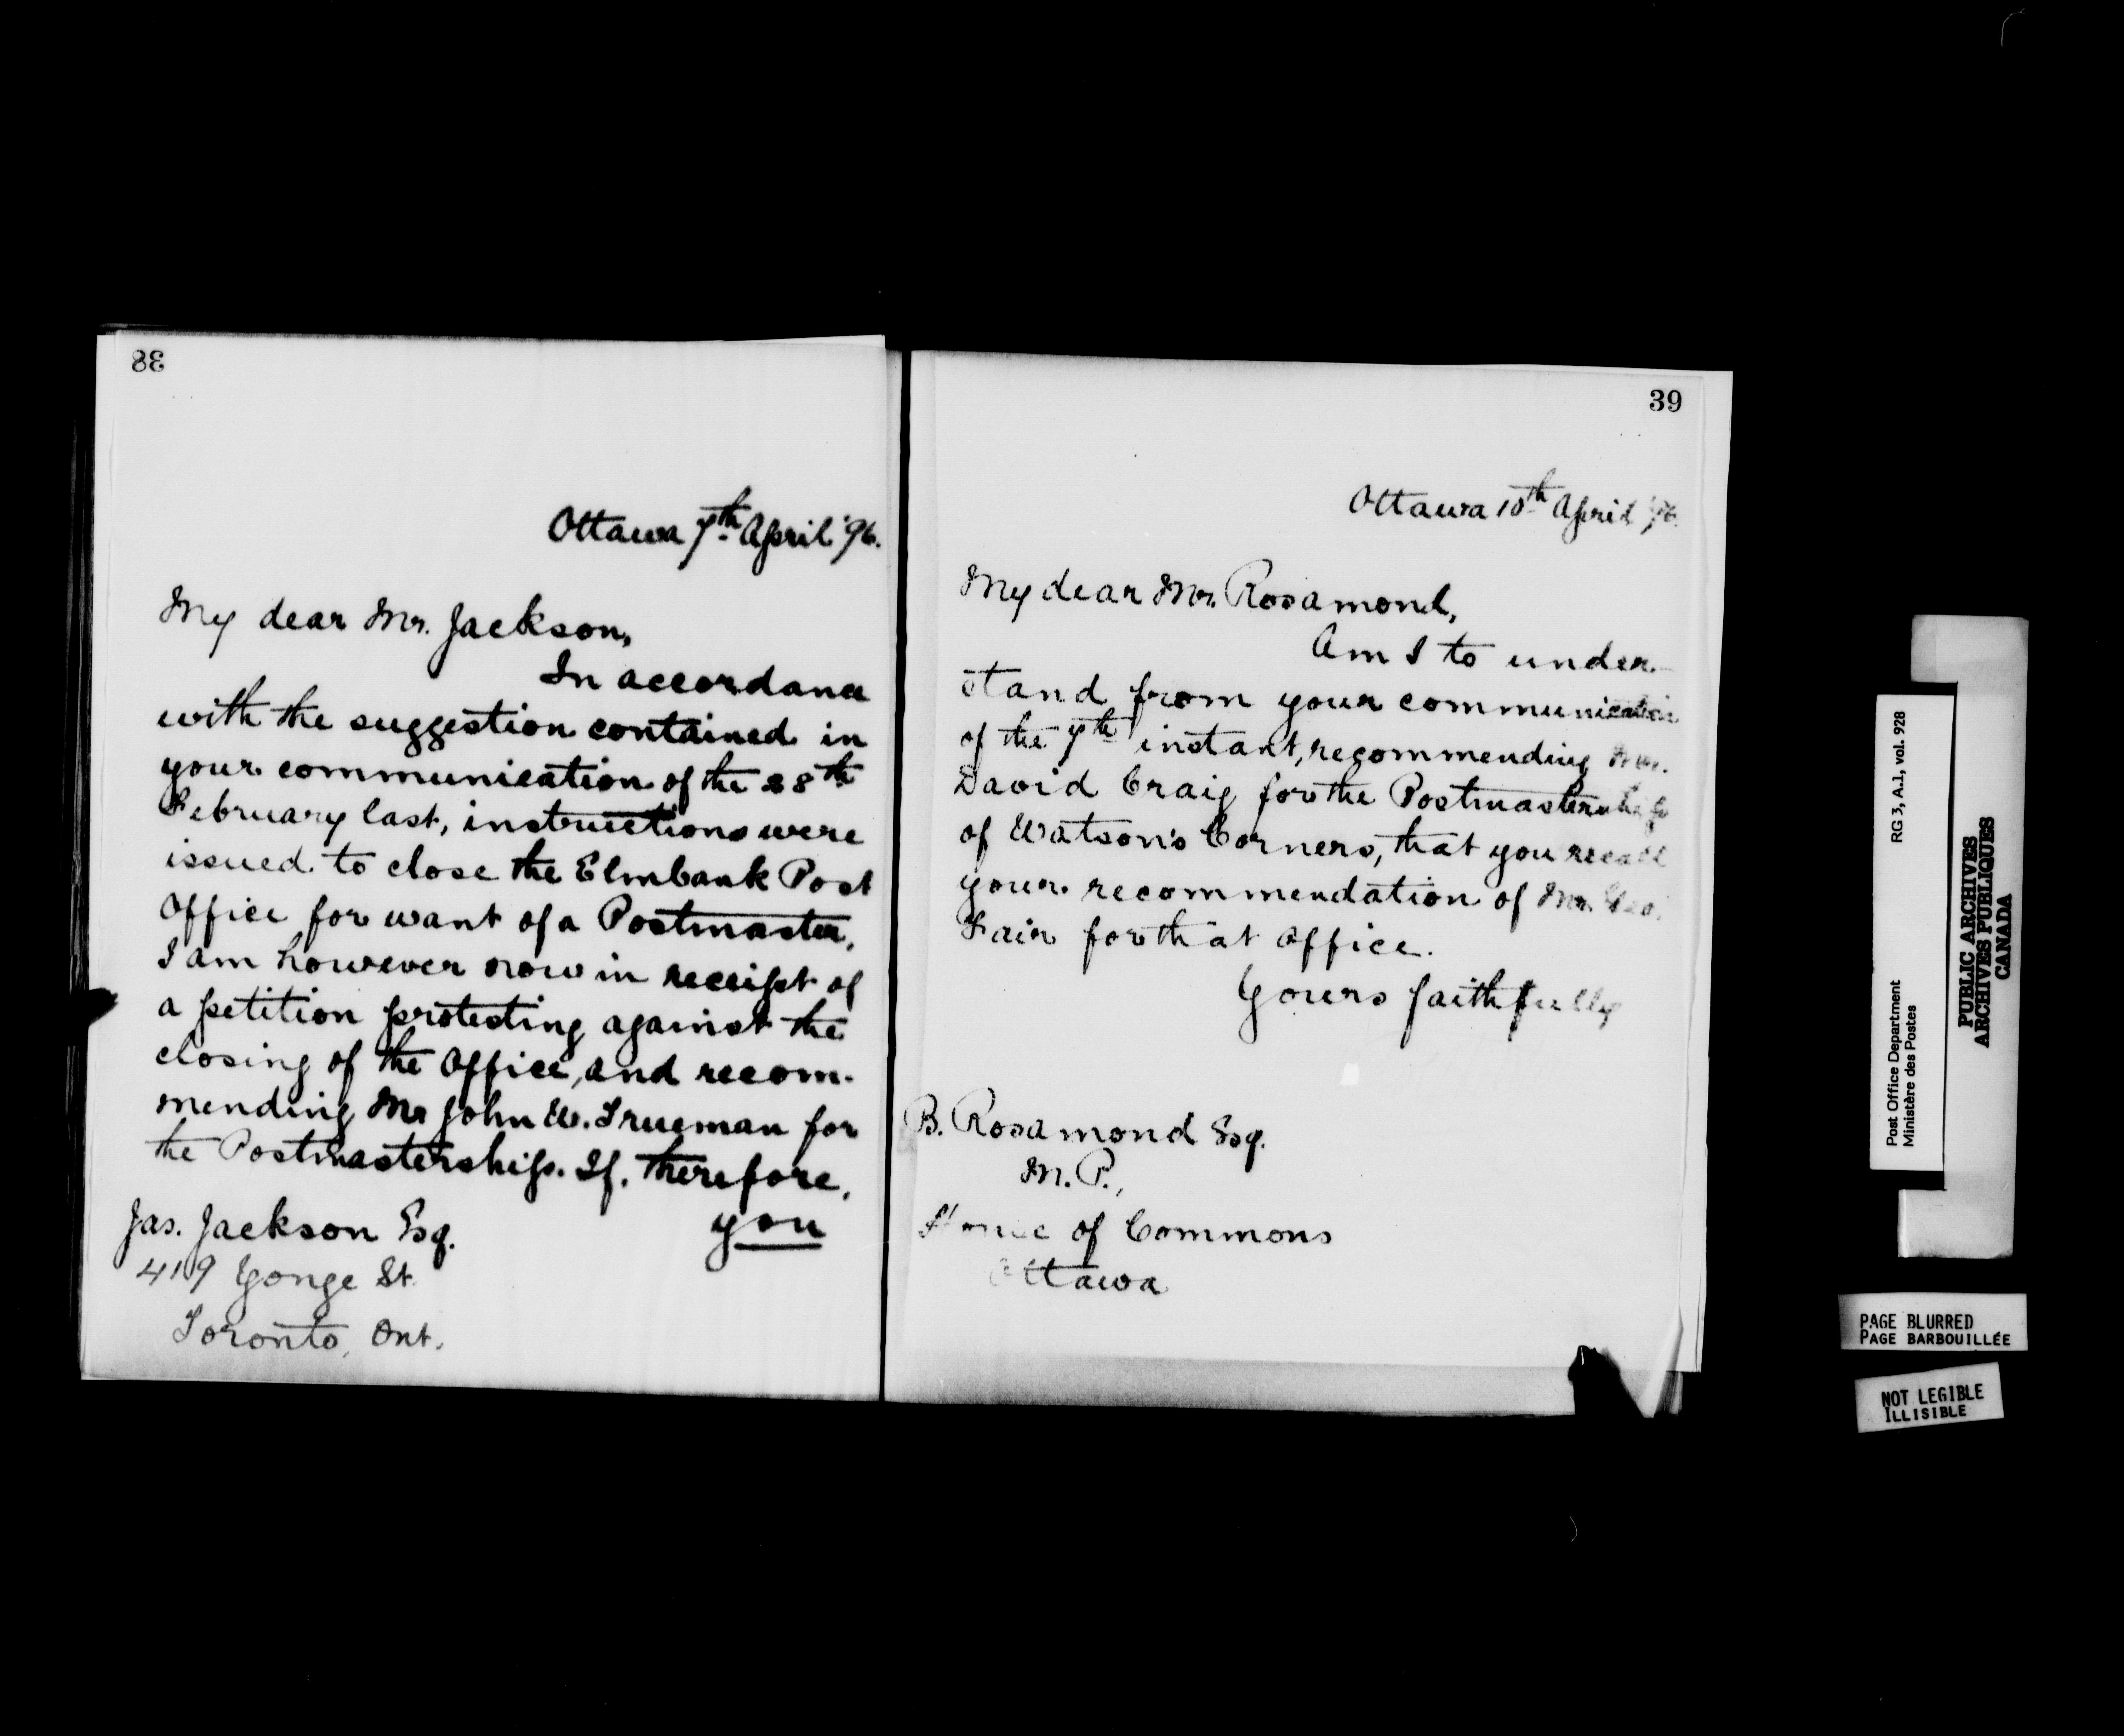 38
Ottawa 7th April '96.
My dear Mr. Jackson,
In accordance
with the suggestion contained in
your communication of the 28th
February last, instructions were
issued to close the Elmbank Post
Office for want of a Postmaster,
I am however now in receipt of
a petition protesting against the
closing of the Office, and recom-
mending Mr John W. Trueman for
the Postmastership. If, therefore,
you
Jas. Jackson Esq.
419 Yonge St.
Toronto, Ont.
39
Ottawa 10th April '96.
My dear Mr. Rosamond,
Am I to under-
stand from your communication
of the 7th instant, recommending Mr.
David Craig for the Postmastership
of Watson's Corners, that you recall
your recommendation of Mr. Geo.
Fair for that office.
Yours faithfully
B. Rosamond Esq.
M.P.,
House of Commons
Ottawa
Post Office Department RG 3, A.1, vol. 928
Ministère des Postes
PUBLIC ARCHIVES
ARCHIVES PUBLIQUES
CANADA
PAGE BLURRED
PAGE BARBOUILLÉE
NOT LEGIBLE
ILLISIBLE